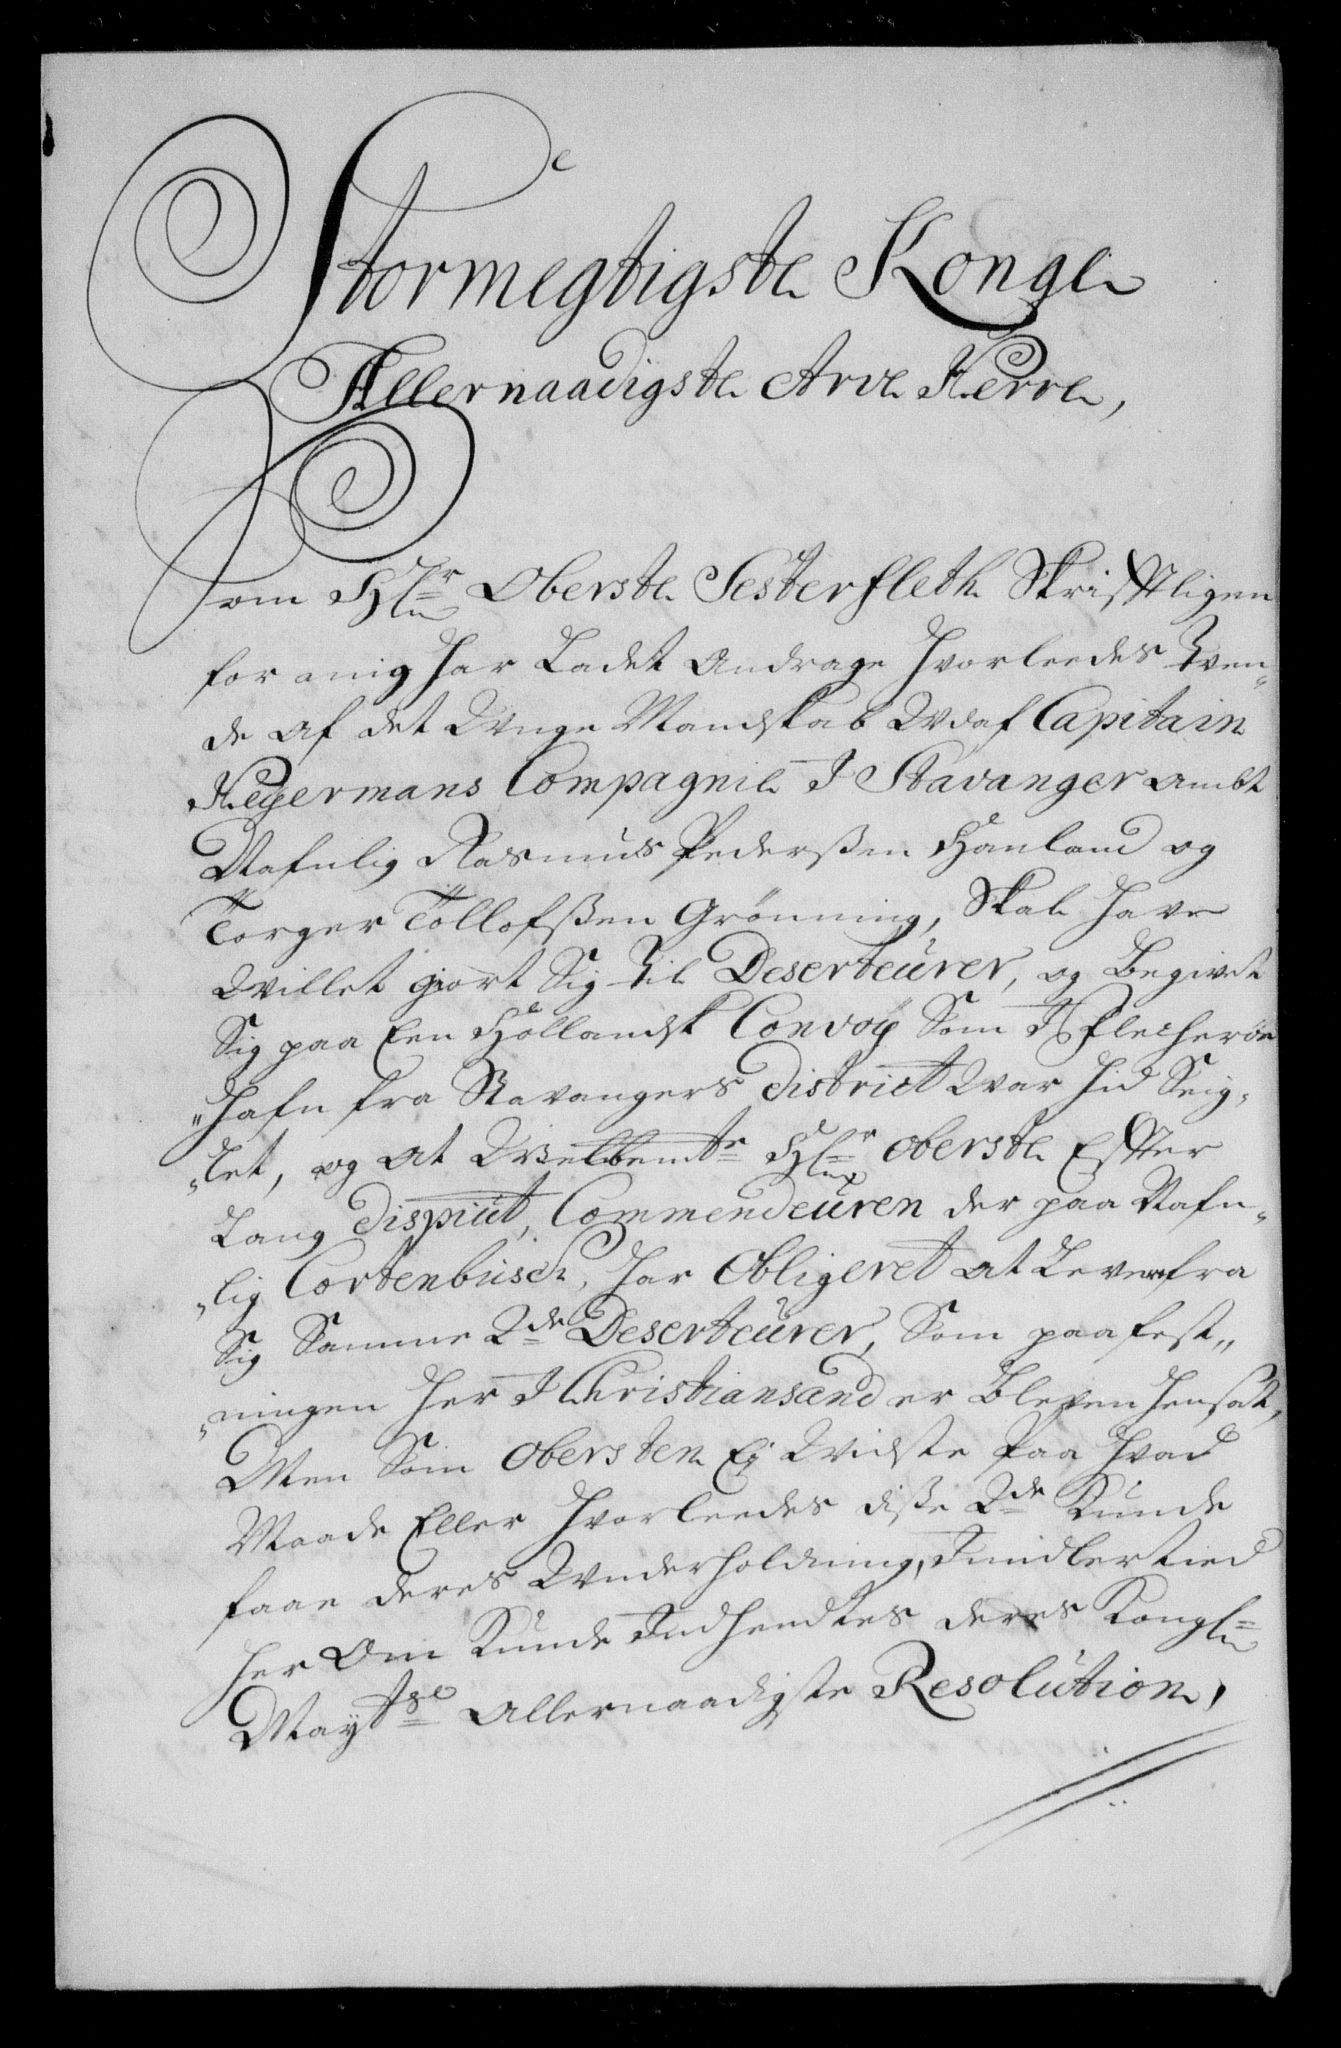 Stormegtigste Konge
Allernaadigste Arve Herre,
Som Hr Oberste Sesterfleth Skrifftligen
for mig har Ladet Andrage hvorleedes Tven„
de af det Unge Mandskab Udaf Capitain
Heyermans Compagnie I Stavanger ambt
Nafnlig Rasmus Pederßen Hanland og
Torger Tollofßen Grönning, Skal have
Willet giort Sig til Deserteurer, og begivet
Sig paa Een Hollandsk Convoy Som I Flecheröe
„hafn fra Stavangers District War hid Seig„
„let, og at Welbemte Hr Oberste Effter
Lang Disput, Commendeuren der paa Nafn„
„lig Cortenbusch, har Obligeret at Levere fra
Sig Samme 2de Deserteurer, Som paa fest„
„ningen her I Christiansand er bleven hensat,
Men Som Obersten Ej Widste Paa hvad
Maade Eller hvorleedes diße 2de Kunde
faae deres Underholdning, Imidlertied
her Om Kunde Indhendtes deres Kongl
Mayts Allernaadigste Resolution,